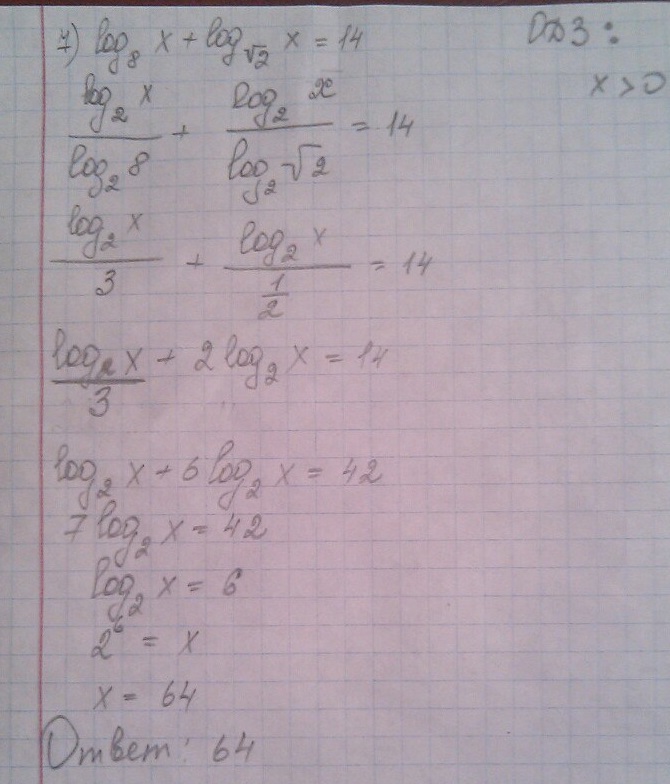 7) log₈ x + log_√2 x = 14
ОДЗ:
x > 0
log₂ x / log₂ 8 + log₂ x / log₂ √2 = 14
log₂ x / 3 + log₂ x / 1/2 = 14
log₂ x / 3 + 2 log₂ x = 14
log₂ x + 6 log₂ x = 42
7 log₂ x = 42
log₂ x = 6
2⁶ = x
x = 64
Ответ: 64